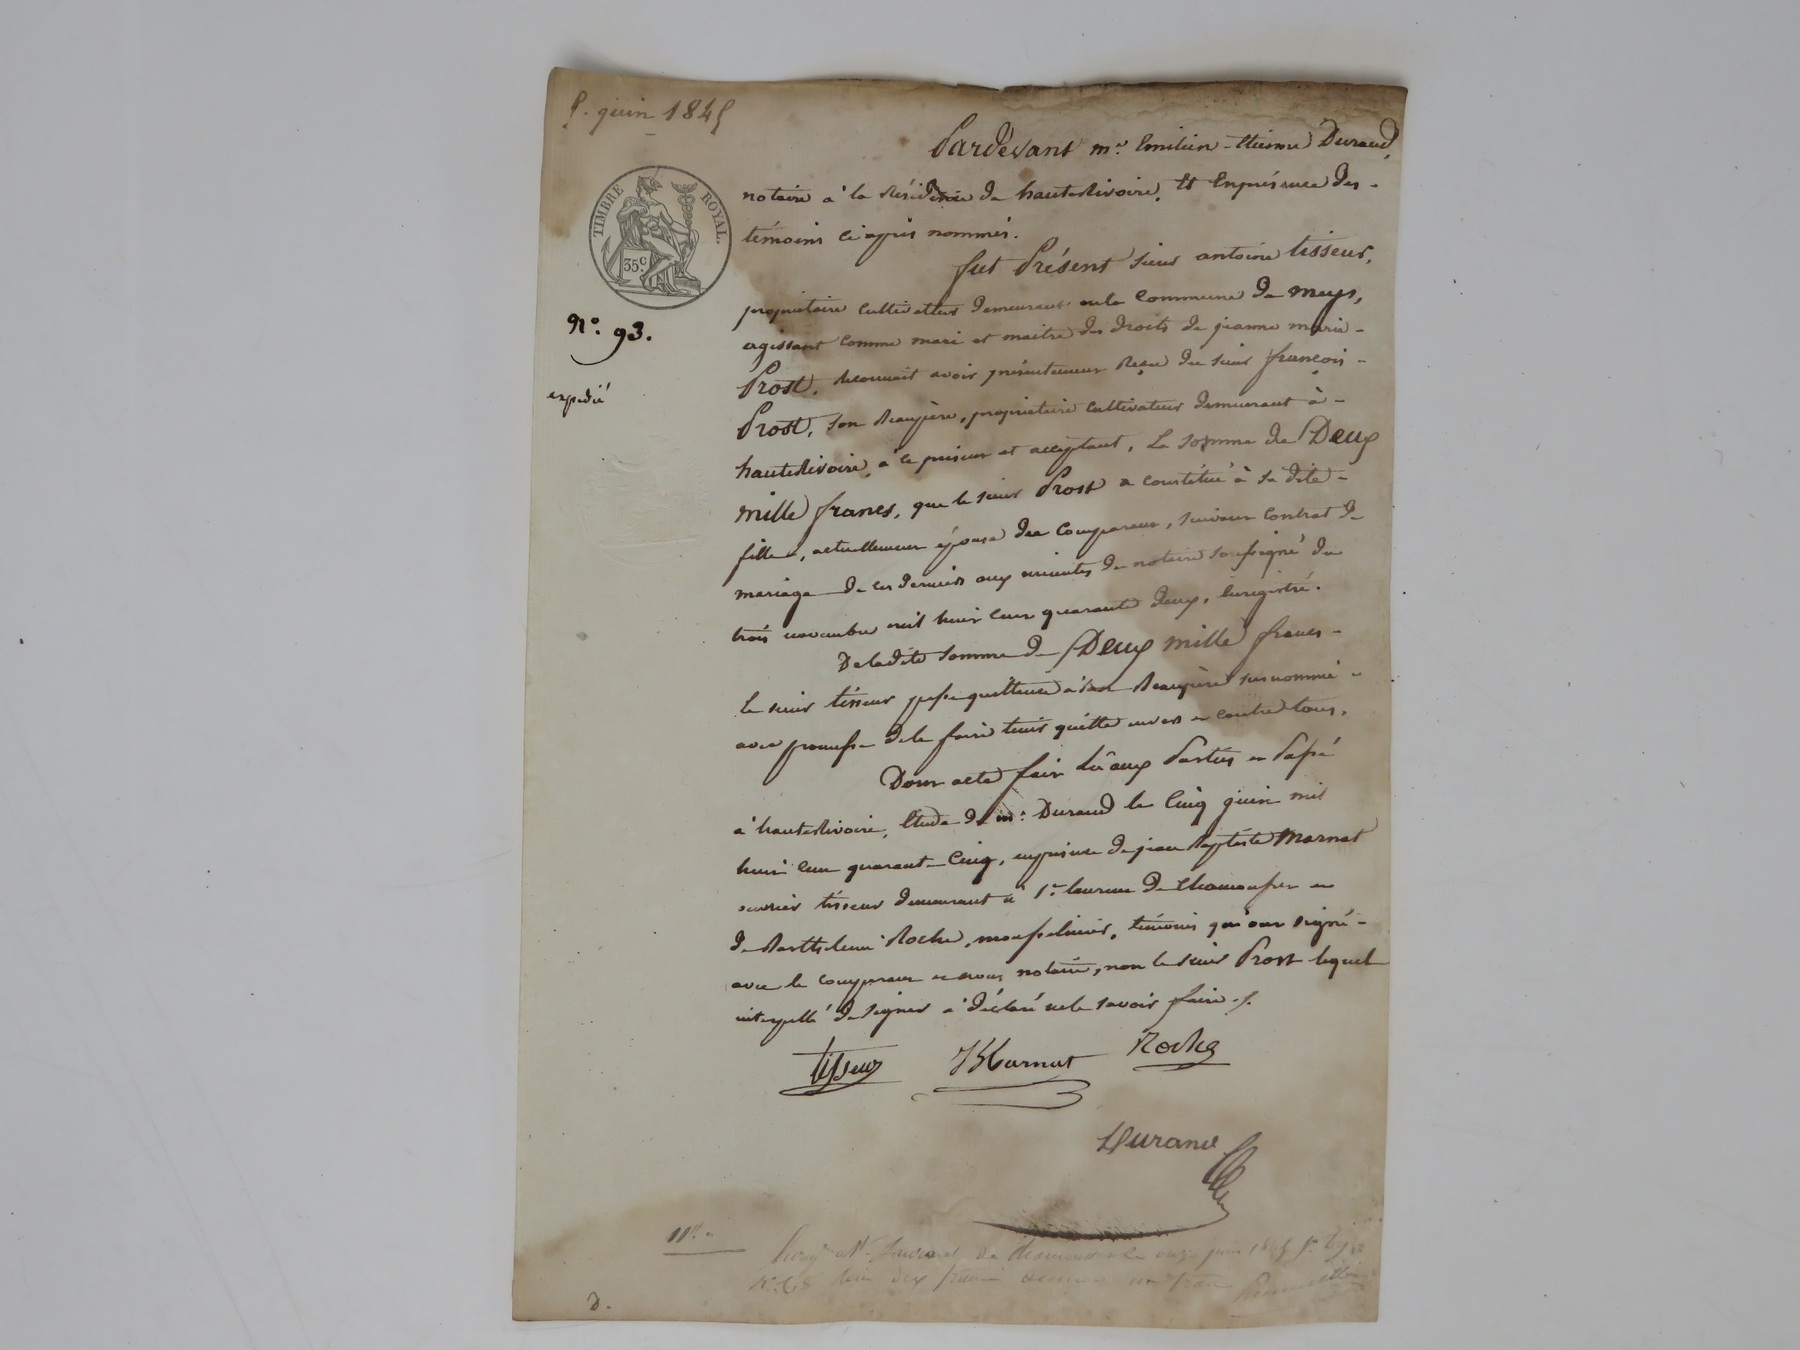 5. juin 1845
Pardevant me. Emilien-Etienne Durand,
notaire à la résidence de hauterivoire, Et Enprésence des-
témoins ci après nommés.
TIMBRE ROYAL.
35c.
fut Présent sieur antoine tisseur,
propriétaire cultivateur demeurant en la Commune de meys,
No. 93.
agissant comme mari et maitre des droits de jeanne marie-
Prost, reconnait avoir présentement Reçu du sieur françois-
expédié
Prost, son Beaupère, propriétaire cultivateur demeurant à-
hauterivoire, à ce présent et acceptant, La somme de Deux
mille francs, que le sieur Prost a constitué à sa dite-
fille, actuellement épouse du Comparant, suivant Contrat de
mariage de ces derniers aux minutes du notaire soussigné du
trois novembre mil huit cent quarante deux, Enregistré.
De ladite somme de Deux mille francs-
le sieur tisseur passe quittance à son Beaupère susnommé-
avec promesse de le faire tenir quitte envers et contre tous.
Dont acte fait Lu aux Parties et Passé
à hauterivoire, Etude de me. Durand le Cinq juin mil
huit cent quarante-Cinq, enprésence de jean Baptiste Marnat
ouvrier tisseur demeurant à St. laurent de Chamousset et
de Barthelemi Roche, mousselinier, témoins qui ont signé-
avec le comparant et nous notaire, non le sieur Prost lequel
interpellé de signer a déclaré ne le savoir faire ./.
tisseur JBMarnat Roche
Durand
11
St Laurent de Chamousset le onze juin 1845
deux francs un franc
D.